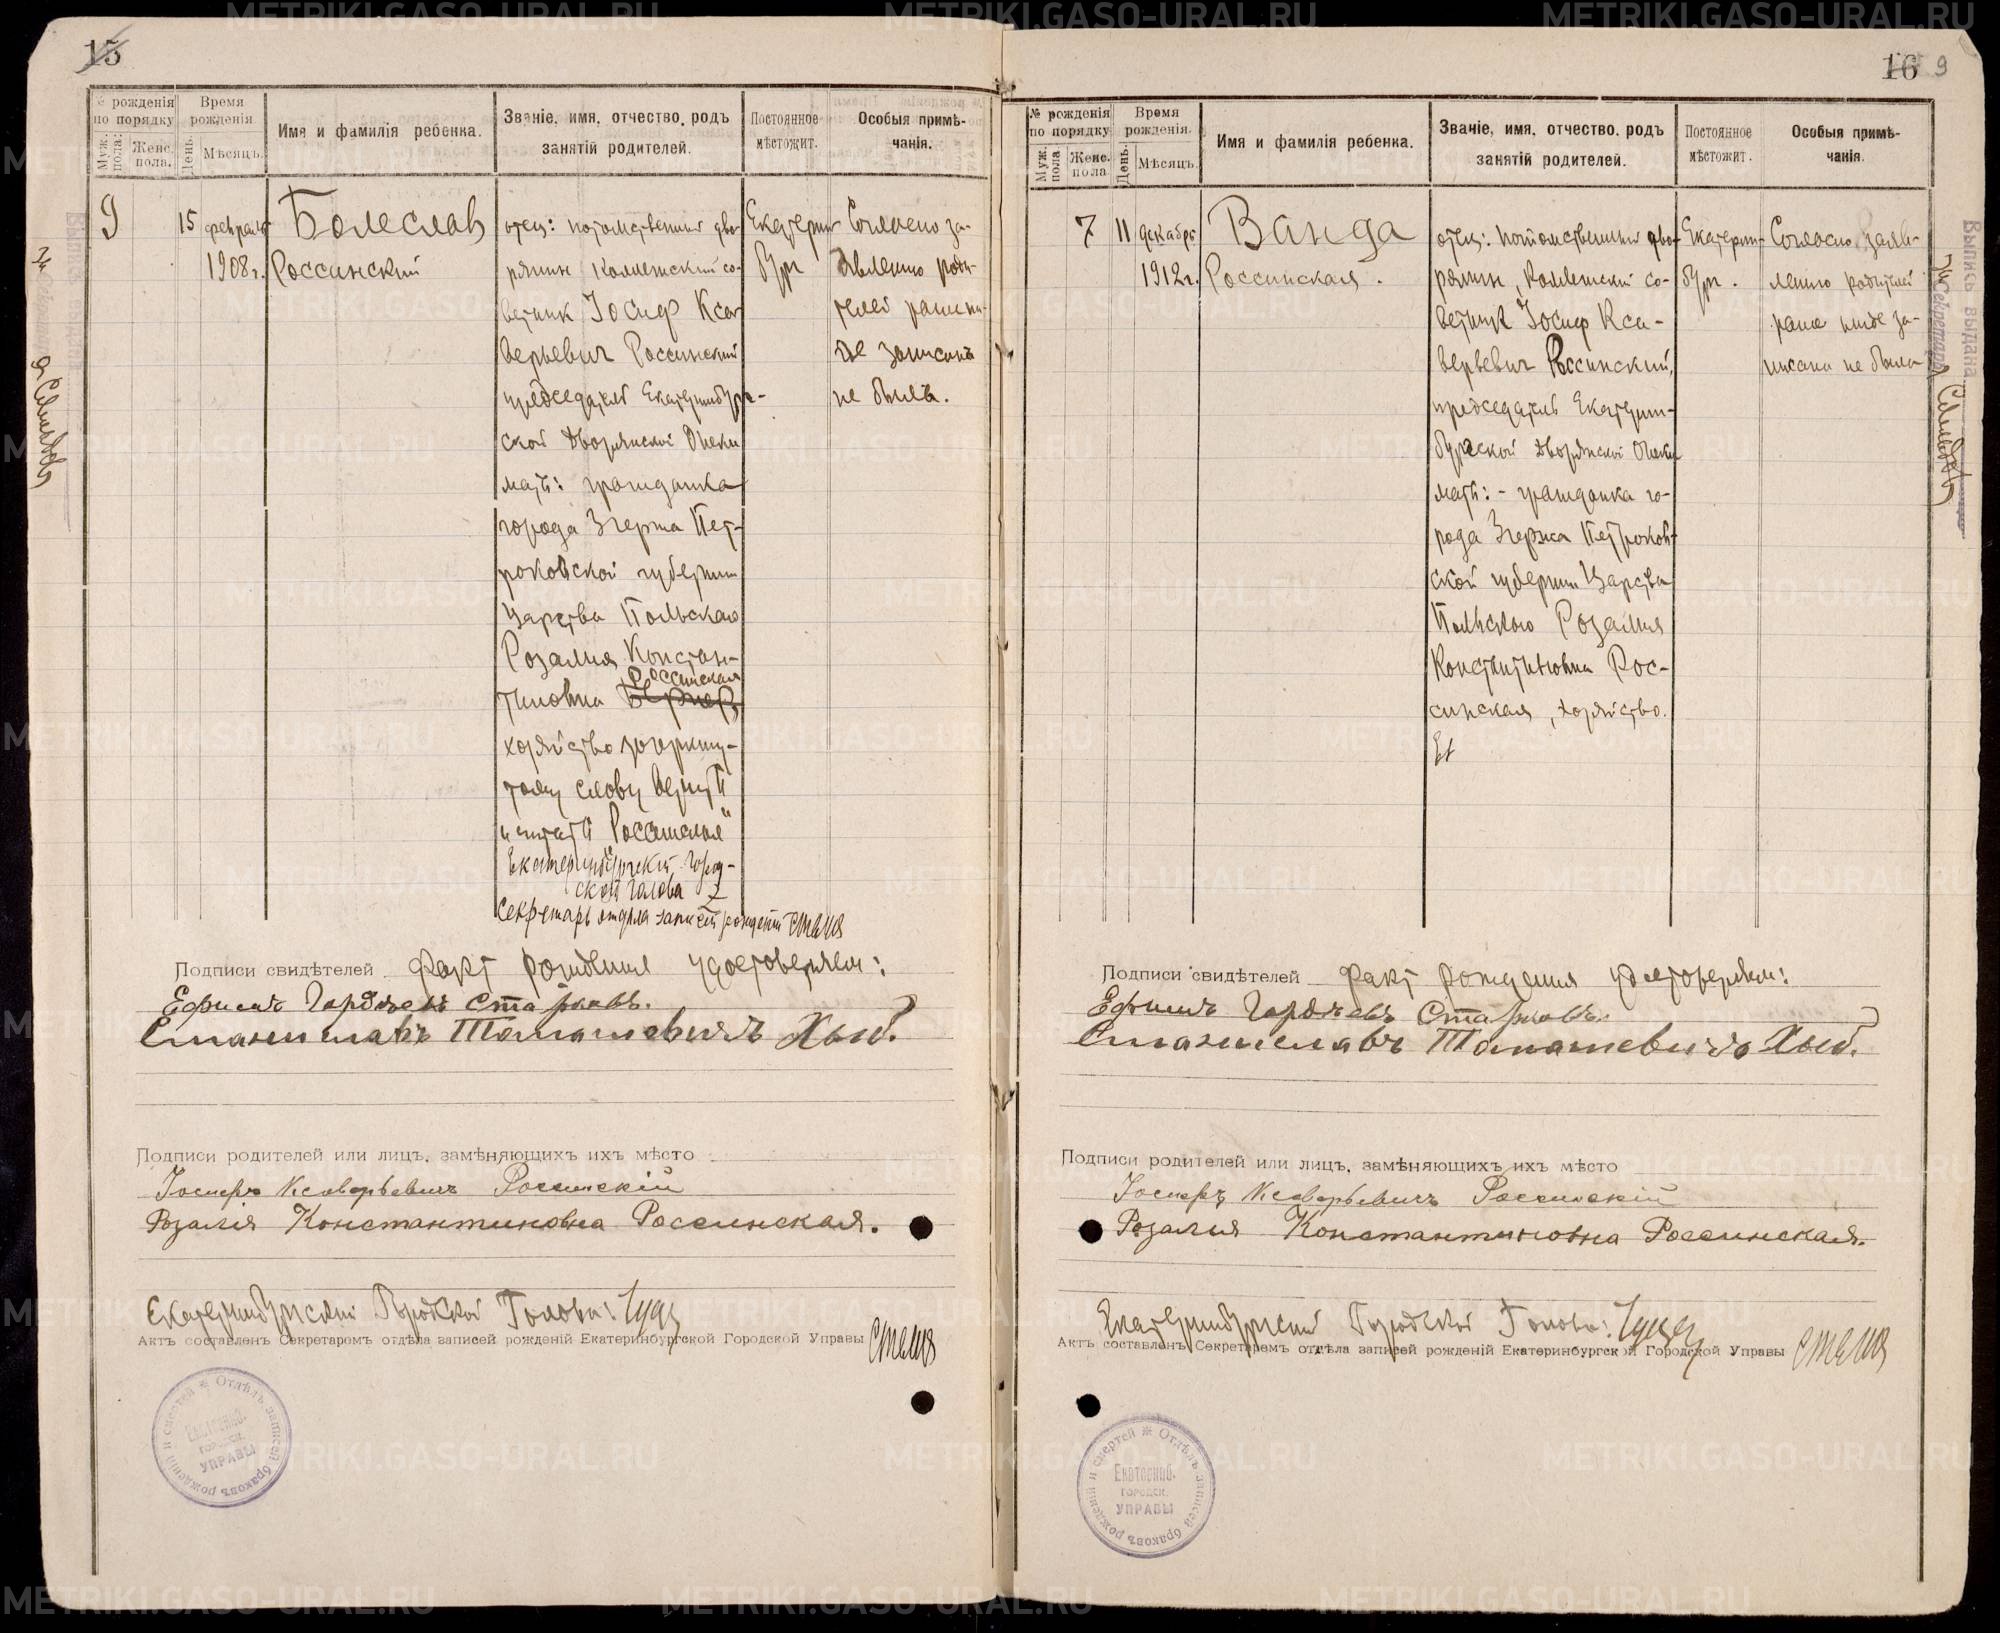 15
№ рожденія по порядку
Муж. пола.
Женс. пола.
Время рожденія
День.
Мѣсяцъ.
Имя и фамилія ребенка.
Званіе, имя, отчество, родъ
занятій родителей.
Постоянное
мѣстожит.
Особыя примѣ-
чанія.
9
15 февраля
1908 г.
Болеслав
Россинский
отец: потомственный дво-
рянин Коллежский со-
ветник Иосиф Кса-
верьевич Россинский
председатель Екатеринбург-
ской Дворянской Опеки
мать: гражданка
города Згержа Пет-
роковской губернии
Царства Польского
Розалия Констан-
Россинская
тиновна
хозяйство зачеркну-
тому слову верить
и читать „Россинская"
Екатеринбургский Город-
ской Голова
Секретарь отдела записей рождений
Екатерин-
бург
Согласно за-
явлению роди-
телей ранее ни-
где записанъ
не былъ.
Подписи свидѣтелей Факт рождения удостоверяем:
Ефимъ Гордѣевъ Старковъ.
Станиславъ Томашевичъ Хыб.
Подписи родителей или лицъ, замѣняющихъ ихъ мѣсто
Іосифъ Ксаверьевичъ Россинскій
Розалія Константиновна Россинская.
Екатеринбургский Городской Голова:
Актъ составленъ Секретаремъ отдѣла записей рожденій Екатеринбургской Городской Управы
Отдѣлъ записей браковъ рожденій и смертей
Екатеринб.
городск.
УПРАВЫ
16 9
№ рожденія по порядку
Муж. пола
Женс. пола
Время рожденія.
День.
Мѣсяцъ.
Имя и фамилія ребенка.
Званіе, имя, отчество, родъ
занятій родителей.
Постоянное
мѣстожит.
Особыя примѣ-
чанія.
7
11 декабря
1912 г.
Ванда
Россинская.
отец: потомственный дво-
рянин, Коллежский со-
ветник Иосиф Кса-
верьевич Россинский,
председатель Екатерин-
бургской Дворянской Опеки
мать: - гражданка го-
рода Згержа Петроков-
ской губернии Царства
Польского Розалия
Константиновна Рос-
синская, хозяйство.
Екатерин-
бург.
Согласно заяв-
лению родителей
ранее нигде за-
писана не была
Выпись выдана
Секретарь
Подписи свидѣтелей Факт рождения удостоверяем:
Ефимъ Гордѣевъ Старковъ.
Станиславъ Томашевичъ Хыб.
Подписи родителей или лицъ, замѣняющихъ ихъ мѣсто
Іосифъ Ксаверьевичъ Россинскій
Розалия Константиновна Россинская.
Екатеринбургский Городской Голова:
Актъ составленъ Секретаремъ отдѣла записей рожденій Екатеринбургской Городской Управы
Отдѣлъ записей браковъ рожденій и смертей
Екатеринб.
городск.
УПРАВЫ
METRIKI.GASO-URAL.RU